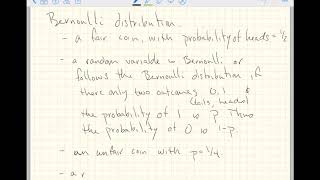 Bernoulli distribution.
- a fair coin, with probability of heads = 1/2
- a random variable is Bernoulli or
follows the Bernoulli distribution, if
there only two outcomes 0, 1
(tails, heads)
the probability of 1 is p. Thus
the probability of 0 is 1-p.
- an unfair coin with p=1/4
- a r